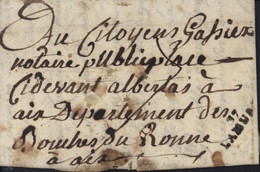 Du Citoyens Gassier
notaire publicplace
Cidevant albertas à
aix Departement des
Bouches du Ronne
à aix